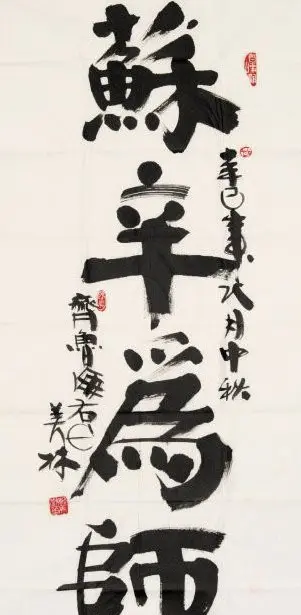 蘇辛為師
辛巳八月中秋
齊魯海右
美林